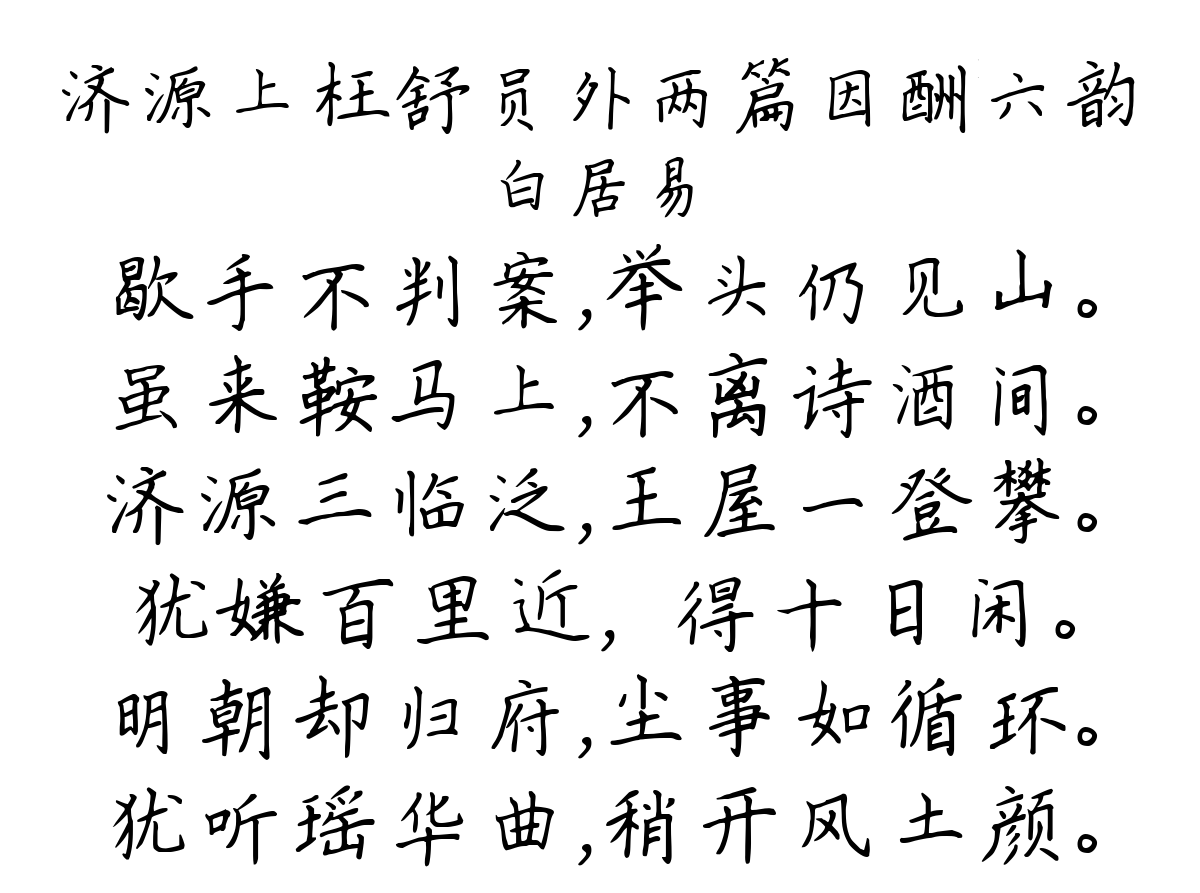 济源上枉舒员外两篇因酬六韵
白居易
歇手不判案,举头仍见山。
虽来鞍马上,不离诗酒间。
济源三临泛,王屋一登攀。
犹嫌百里近,得十日闲。
明朝却归府,尘事如循环。
犹听瑶华曲,稍开风土颜。